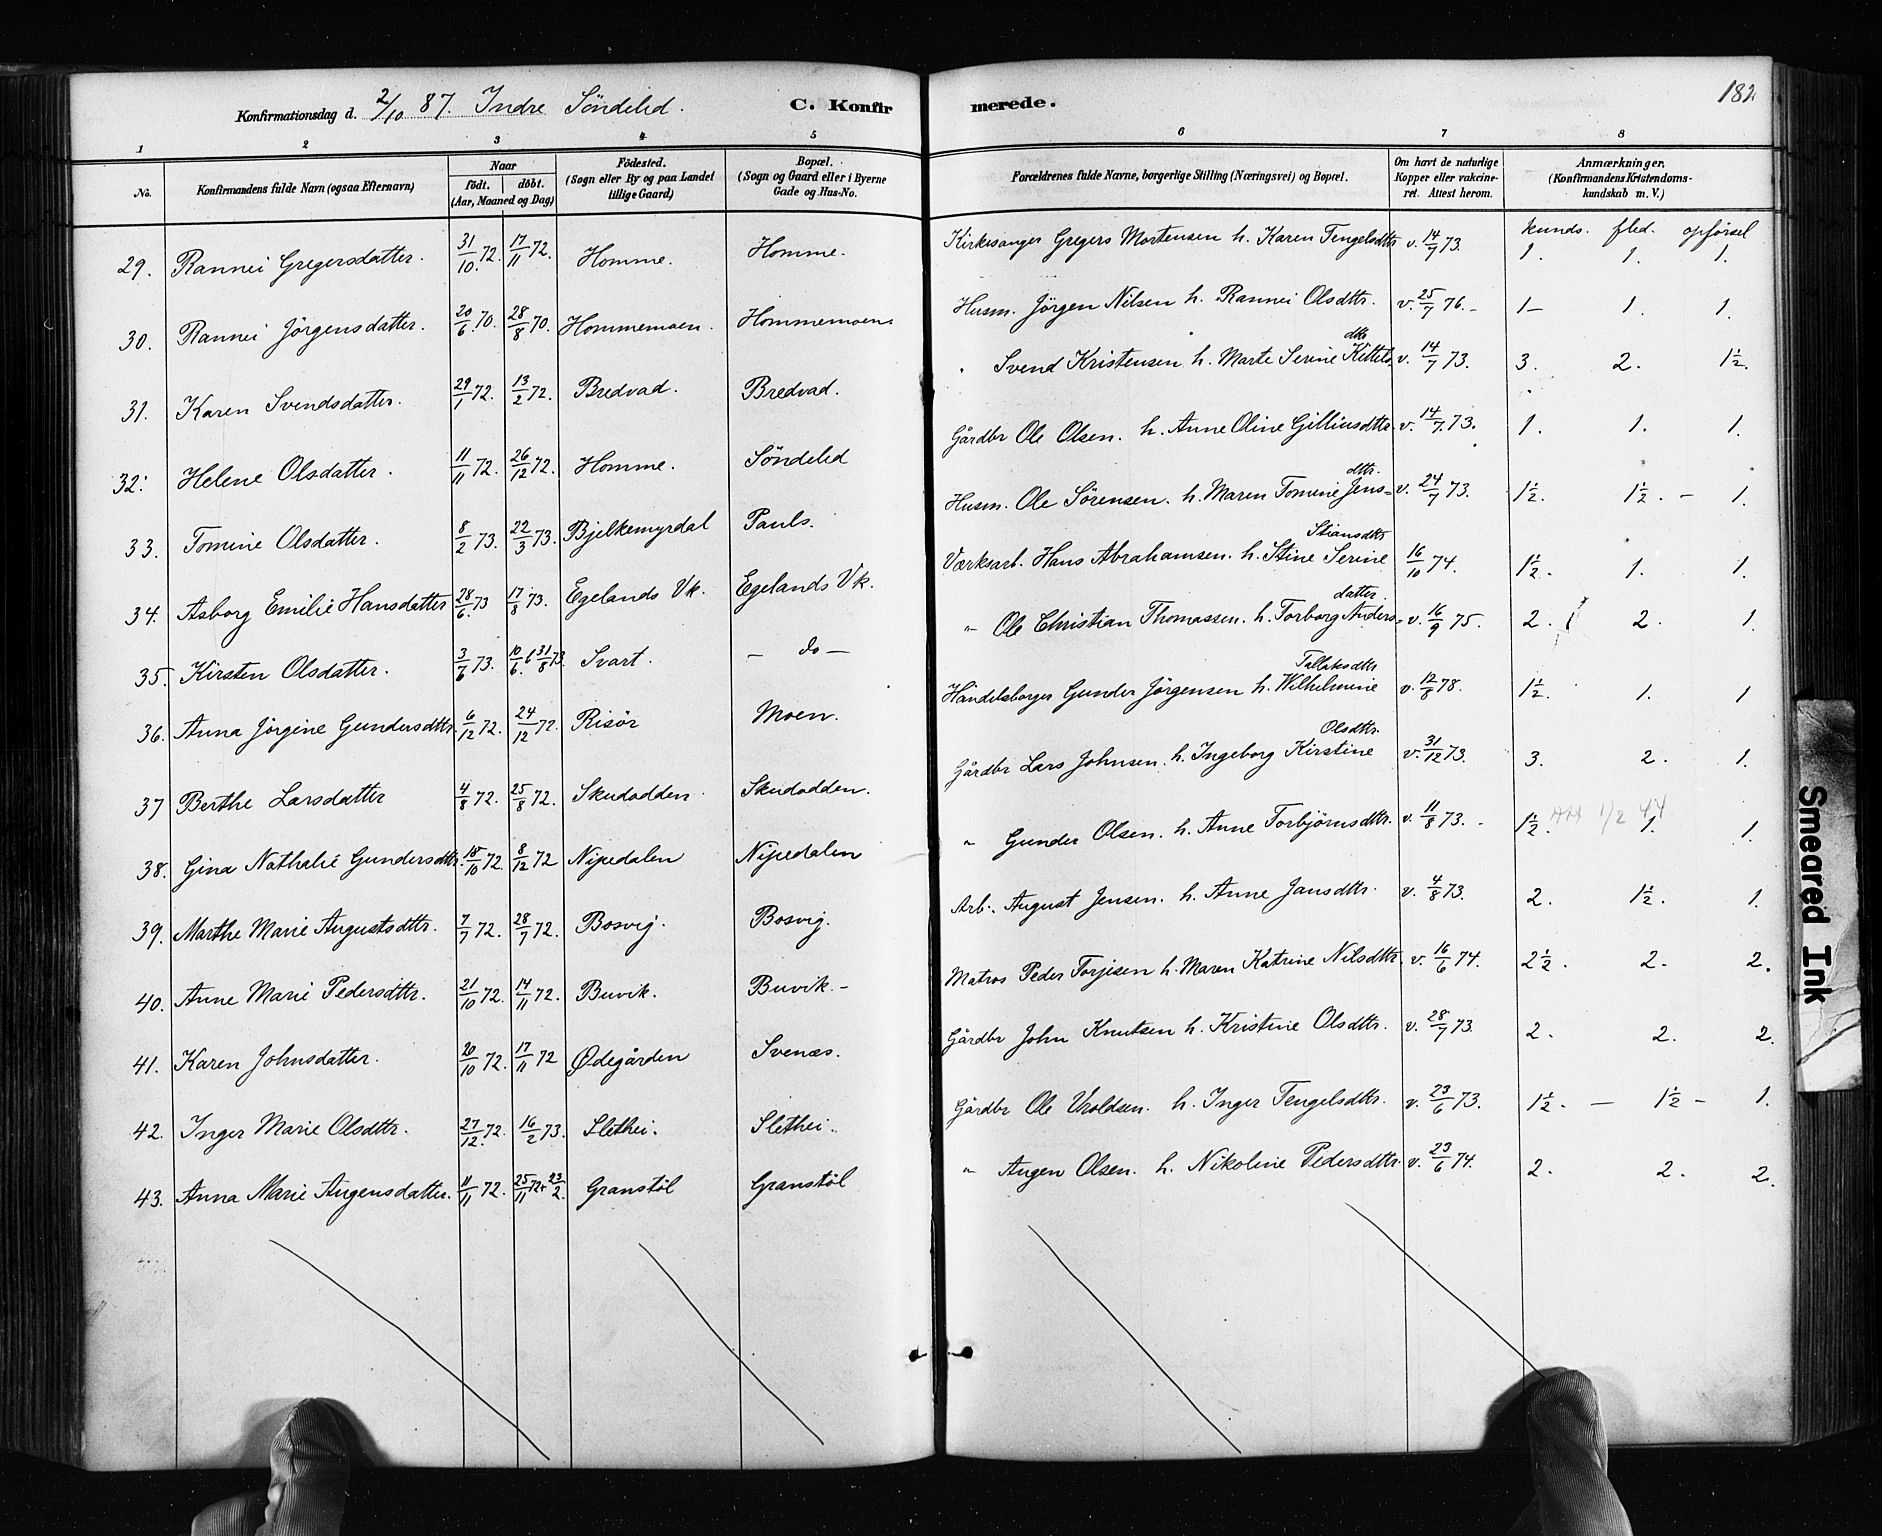 182
Konfirmationsdag d. 2/10 87. Indre Söndeled. C. Konfirmerede.
1 2 3 4 5 6 7 8
No. Konfirmandens fulde Navn (ogsaa Efternavn) Naar födt. döbt. (Aar, Maaned og Dag) Födested. (Sogn eller By og paa Landet tillige Gaard) Bopæl. (Sogn og Gaard eller i Byerne Gade og Hus-No. Forældrenes fulde Navne, borgerlige Stilling (Næringsvei) og Bopæl. Om havt de naturlige Kopper eller vakcineret. Attest herom. Anmærkninger, (Konfirmandens Kristendomskundskab m. V.)
kunds. flid. opförsel
29. Rannei Gregersdatter. 31/10 72. 17/11 72. Homme. Homme. Kirkesanger Gregers Mortensen h. Karen Tengelsdttr v. 14/7 73. 1. 1. 1.
30. Rannei Jörgensdatter. 20/6 70. 28/8 70. Hommemoen. Hommemoen. Husm. Jörgen Nilsen h. Rannei Olsdttr. v. 25/7 76. - 1 - 1. 1.
31. Karen Svendsdatter. 29/1 72. 13/2 72. Bredvad. Bredvad. " Svend Kristensen h. Marte Serine Kittels dttr v. 14/7 73. 3. 2. 1½.
32. Helene Olsdatter. 11/11 72. 26/12 72. Homme. Söndeled Gårdbr Ole Olsen. h. Anne Oline Gilliusdttr v. 14/7 73. 1. 1. 1.
33. Tomine Olsdatter. 8/2 73. 22/3 73. Bjelkemyrdal Pauls. Husm. Ole Sörensen. h. Maren Tomine Jens= dttr. v. 24/7 73. 1½. 1½. - 1.
34. Asborg Emilie Hansdatter 28/6 73 17/8 73. Egelands Vk. Egelands Vk. Værksarb. Hans Abrahamsen. h. Stine Serine Stiansdttr 16/10 74. 1½. 1. 1.
35. Kirsten Olsdatter. 3/6 73. 10/6. 31/8 73. Svart. — do — " Ole Christian Thomassen. h. Torborg Anders= datter. v. 16/9 75. 2. 2. 1.
36. Anna Jörgine Gundersdttr. 6/12 72. 24/12 72. Risör Moen. Handelsborger Gunder Jörgensen h. Wilhelmine Tallaksdttr v. 12/8 78. 1½. 1. 1
37 Berthe Larsdatter 4/8 72. 25/8 72. Skudodden. Skudodden. Gårdbr Lars Johnsen. h. Ingeborg Kirstine Olsdttr. v. 31/12 73. 3. 2. 1.
38. Gina Nathalie Gundersdttr. 18/10 72. 8/12 72 Nipedalen Nipedalen " Gunder Olsen. h. Anne Torbjörnsdttr. v. 11/8 73. - 1½. 1. 1.
39. Marthe Marie Augustsdttr. 7/7 72. 28/7 72. Bosvig. Bosvig. Arb. August Jensen. h. Anne Jansdttr. v. 4/8 73. 2. 1½. 1.
40. Anne Marie Pedersdttr. 21/10 72. 14/11 72. Buvik. Buvik. - Matros Peder Torjisen h. Maren Katrine Nilsdttr. v. 16/6 74. 2½. 2. 2.
41. Karen Johnsdatter. 20/10 72. 17/11 72 Ödegården Svenæs. Gårdbr John Knutsen h. Kristine Olsdttr. v. 28/7 73. 2. 2. 2.
42. Inger Marie Olsdttr. 27/12. 72. 16/2 73. Slethei. Slethei. Gårdbr Ole Uroldsen. h. Inger Tengelsdttr. v. 23/6 73. 1½. — 1½ - 1.
43. Anna Marie Augensdatter. 11/11 72. 25/11 72 + 23/2. Granstöl Granstöl " Augen Olsen. h. Nikoline Pedersdttr. v. 23/6 74. 2. 2. 2.
Smeared Ink